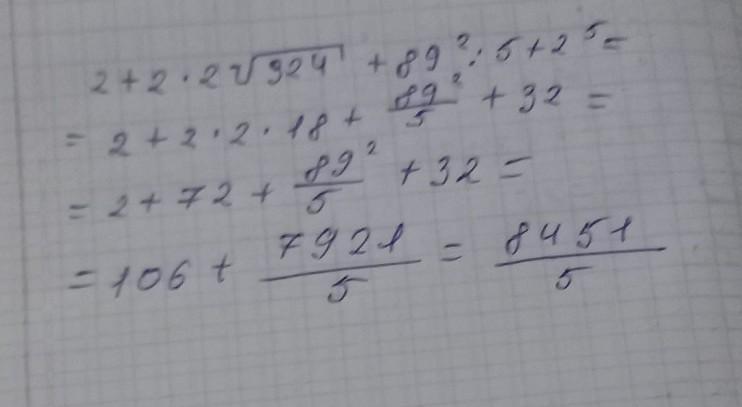 2+2·2√324 + 89² : 5+2⁵=
= 2+2·2·18+ 89²/5 +32 =
= 2+72+ 89²/5 +32=
=106+ 7921/5 = 8451/5